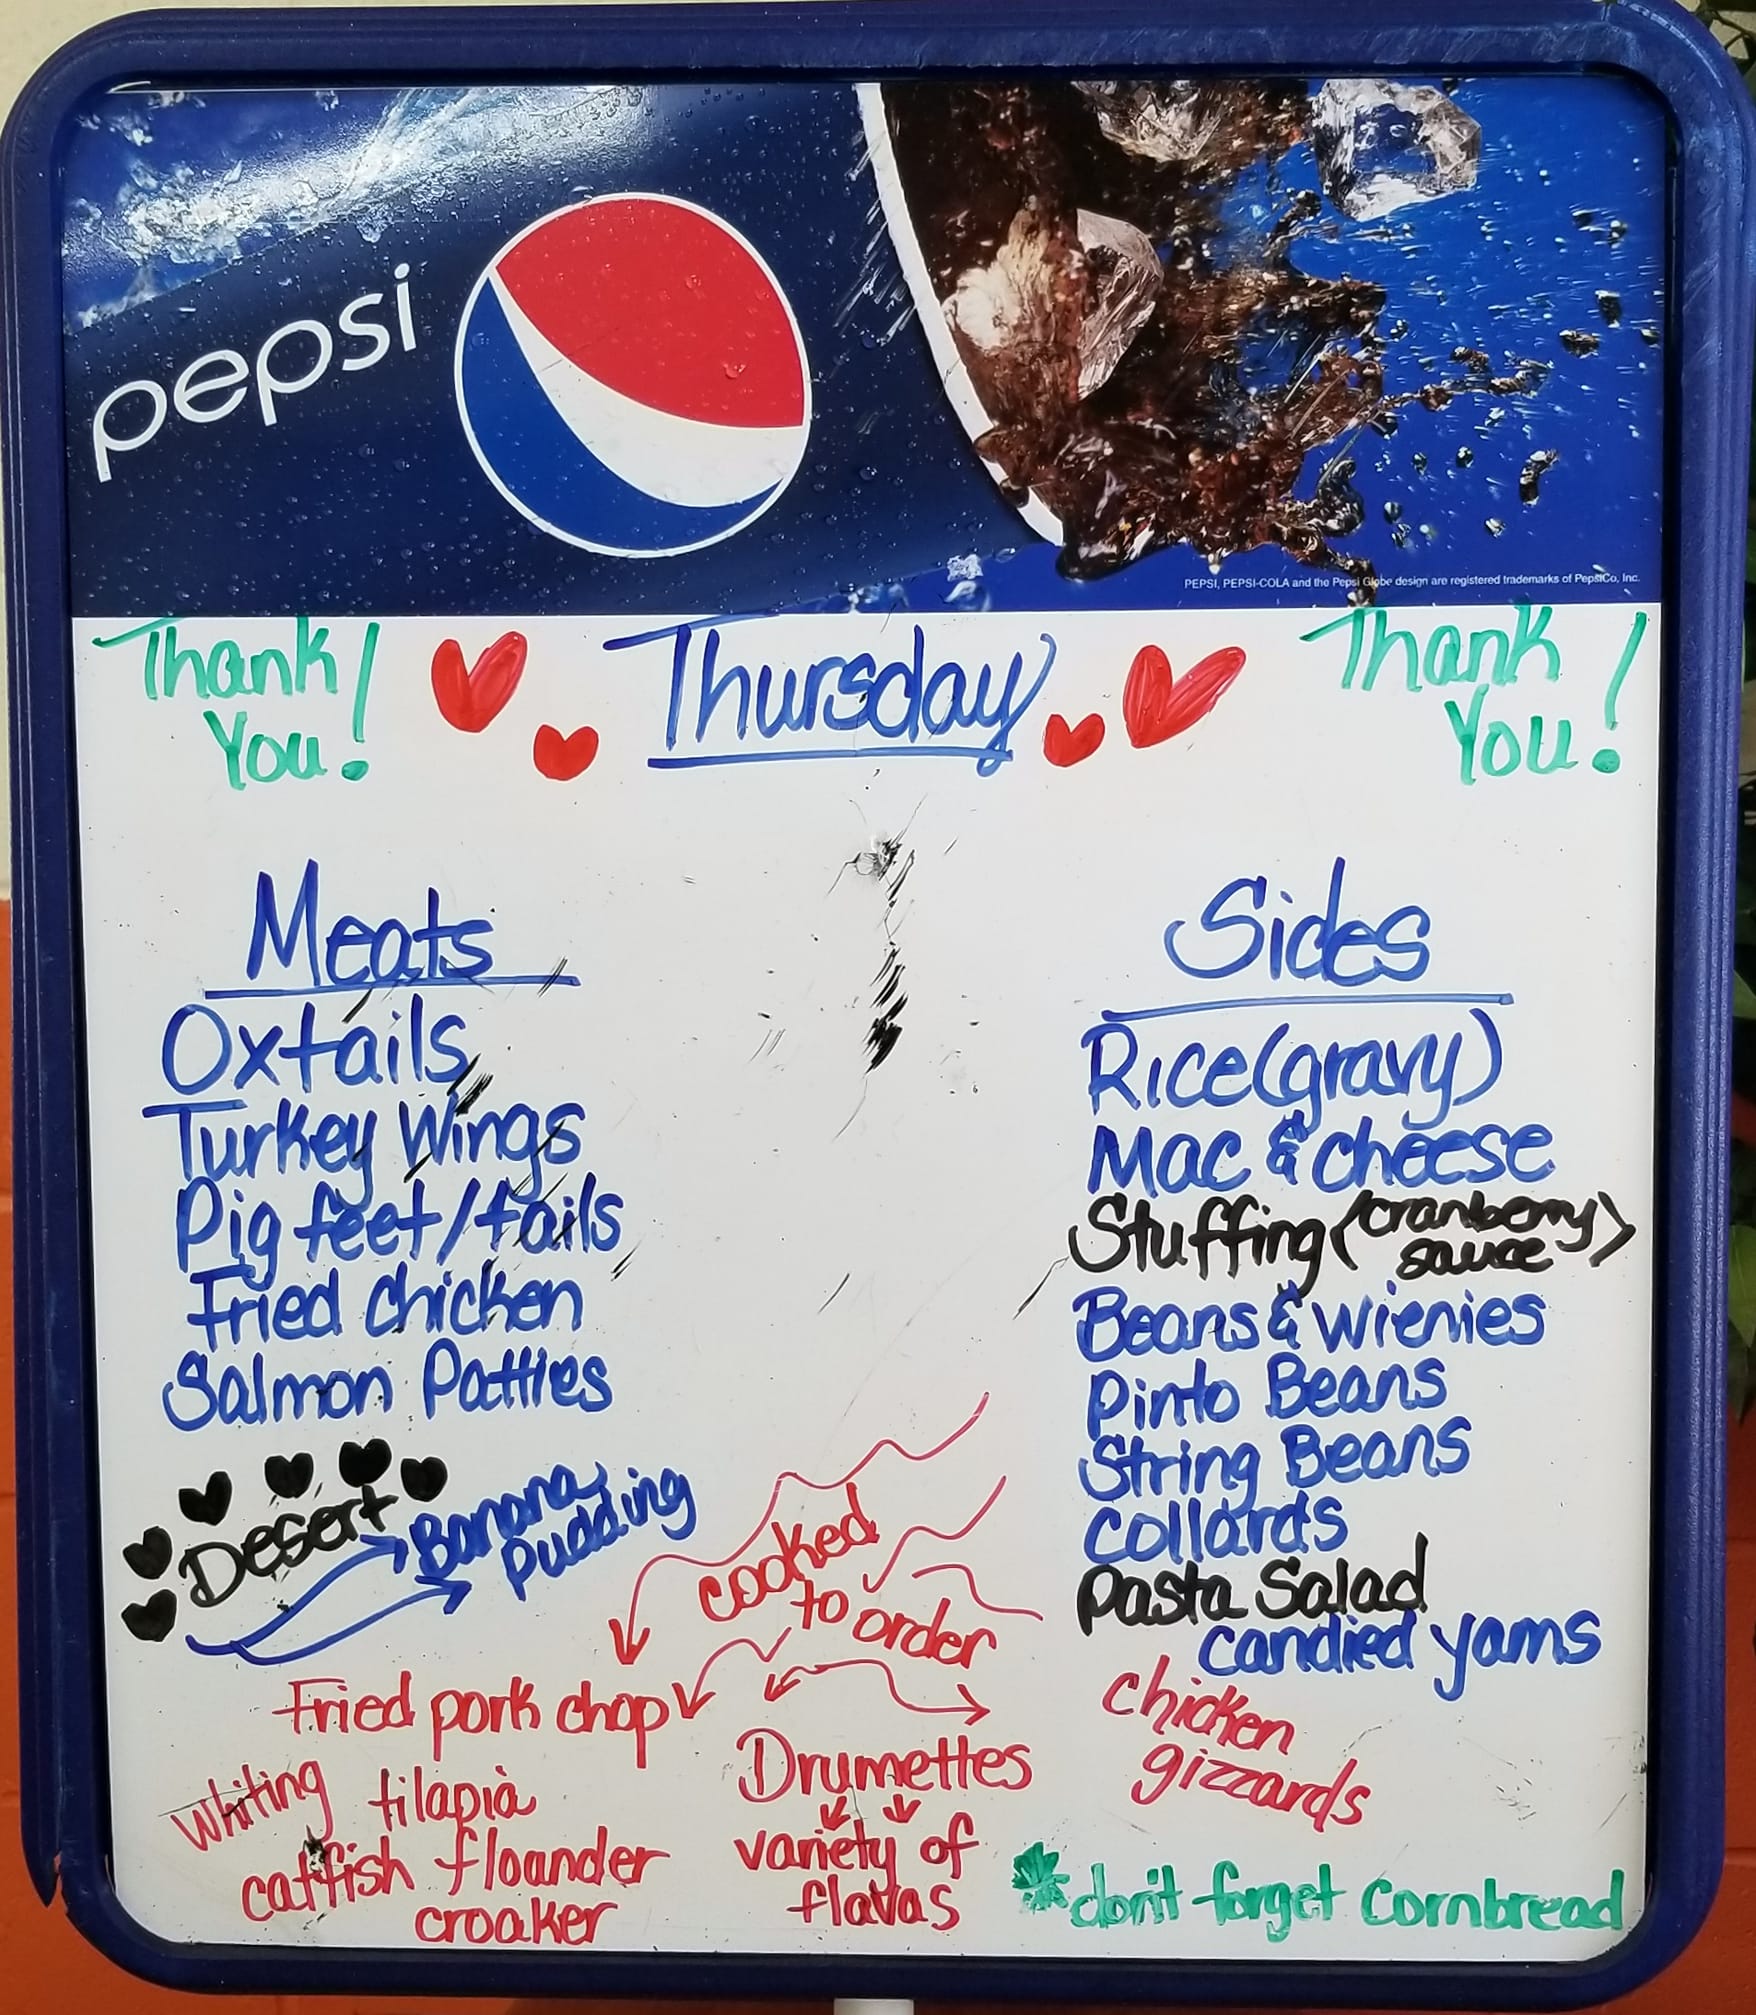 pepsi
PEPSI, PEPSI-COLA and the Pepsi Globe design are registered trademarks of PepsiCo, Inc.
Thank
You!
Thursday
Thank
You!
Meats
Oxtails
Turkey Wings
Pig feet/tails
Fried chicken
Salmon Patties
Desert
Banana
pudding
Sides
Rice (gravy)
Mac & cheese
Stuffing (cranberry
sauce)
Beans & wienies
Pinto Beans
String Beans
collards
Pasta Salad
candied yams
cooked
to order
Fried pork chop
whiting tilapia
catfish flounder
croaker
Drumettes
variety of
flavas
chicken
gizzards
*don't forget cornbread